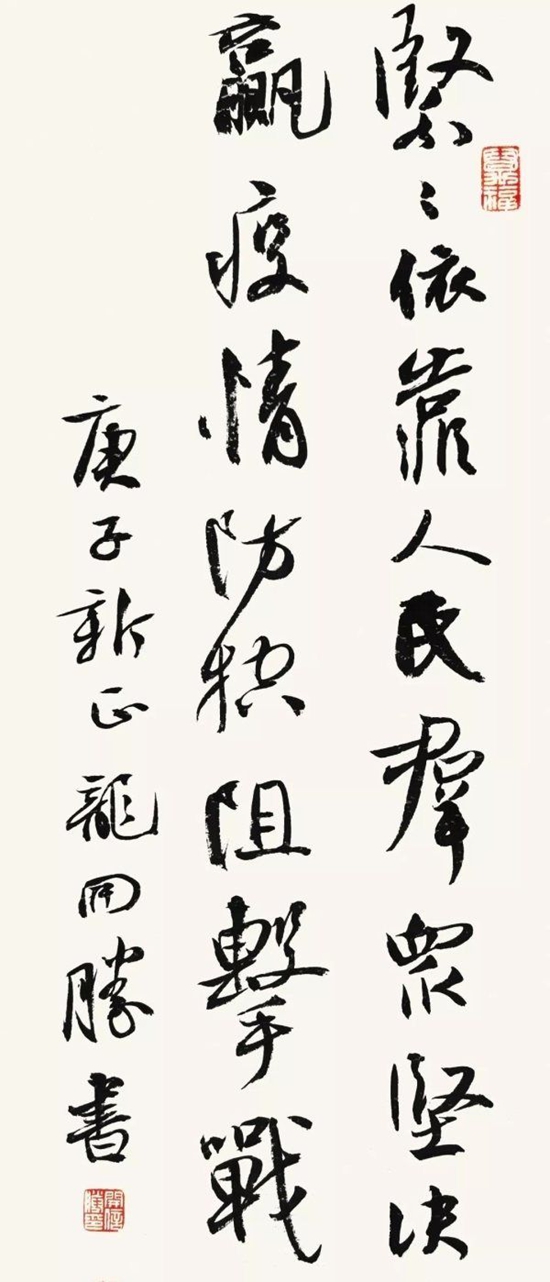 緊々依靠人民群衆堅決
贏疫情防控阻擊戰
庚子新正龍開勝書